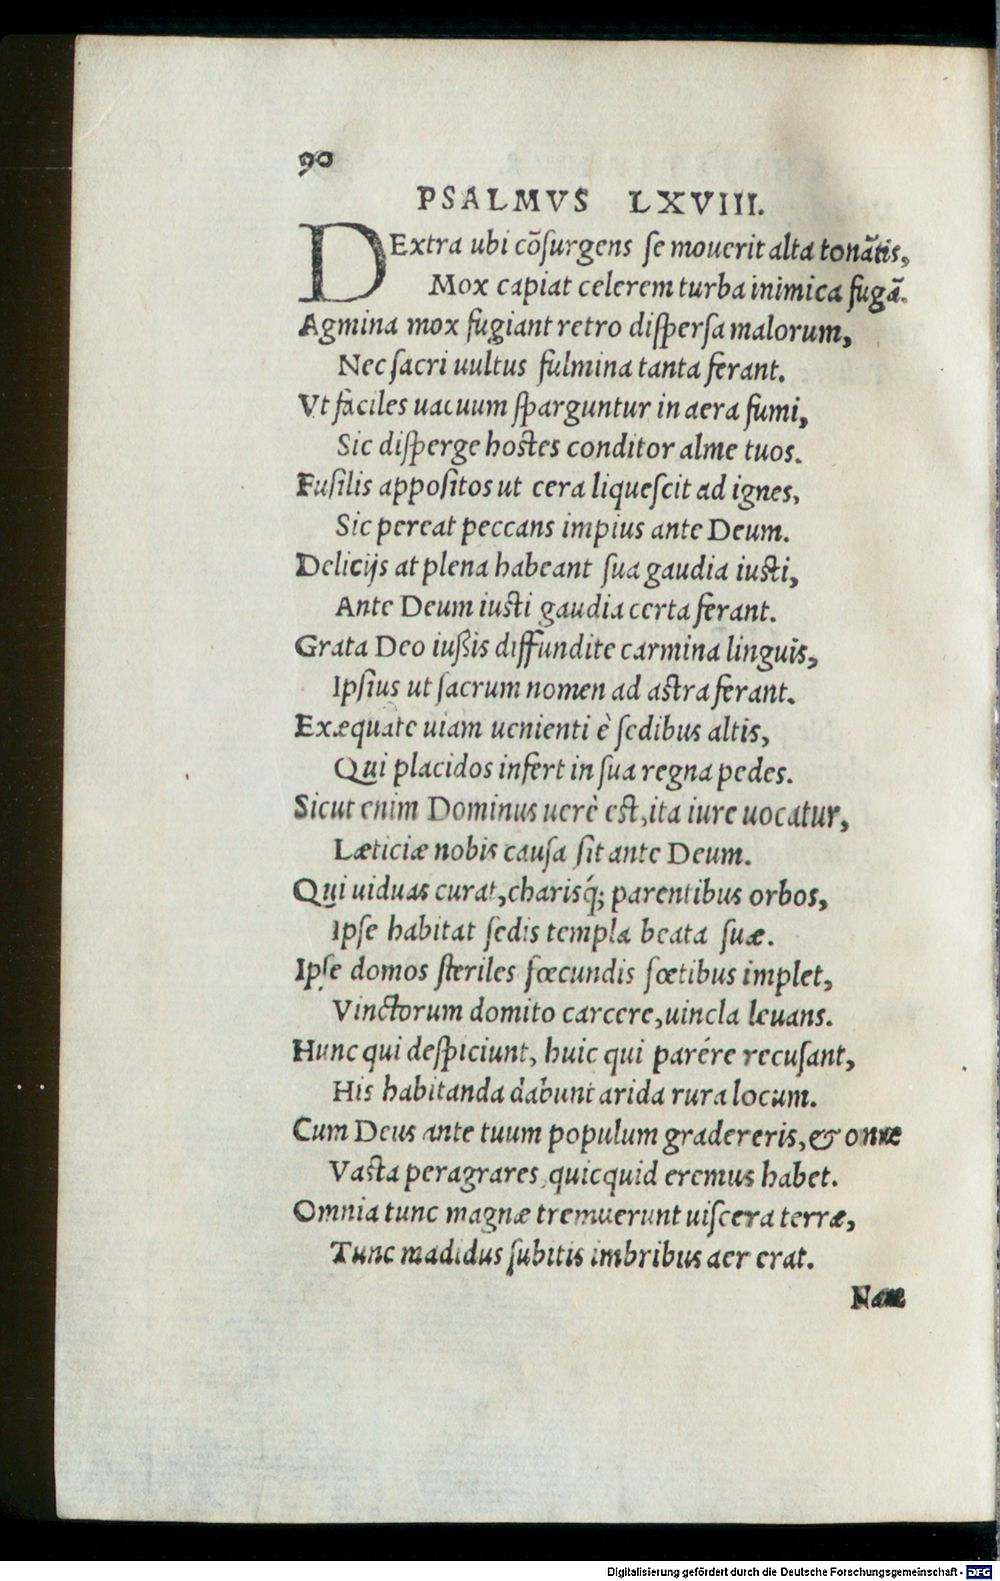 90
PSALMVS LXVIII.
DExtra ubi cõsurgens se mouerit alta tonãtis,
Mox capiat celerem turba inimica fugã.
Agmina mox fugiant retro dispersa malorum,
Nec sacri uultus fulmina tanta ferant.
Vt faciles uacuum sparguntur in aera fumi,
Sic disperge hostes conditor alme tuos.
Fusilis appositos ut cera liquescit ad ignes,
Sic pereat peccans impius ante Deum.
Delicijs at plena habeant sua gaudia iusti,
Ante Deum iusti gaudia certa ferant.
Grata Deo iußis diffundite carmina linguis,
Ipsius ut sacrum nomen ad astra ferant.
Exæquate uiam uenienti è sedibus altis,
Qui placidos infert in sua regna pedes.
Sicut enim Dominus uerè est, ita iure uocatur,
Læticiæ nobis causa sit ante Deum.
Qui uiduas curat, charisq́; parentibus orbos,
Ipse habitat sedis templa beata suæ.
Ipse domos steriles fœcundis fœtibus implet,
Vinctorum domito carcere, uincla leuans.
Hunc qui despiciunt, huic qui parére recusant,
His habitanda dabunt arida rura locum.
Cum Deus ante tuum populum gradereris, & omne
Vasta peragrares quicquid eremus habet.
Omnia tunc magnæ tremuerunt uiscera terræ,
Tunc madidus subitis imbribus aer erat.
Nam
Digitalisierung gefördert durch die Deutsche Forschungsgemeinschaft - DFG